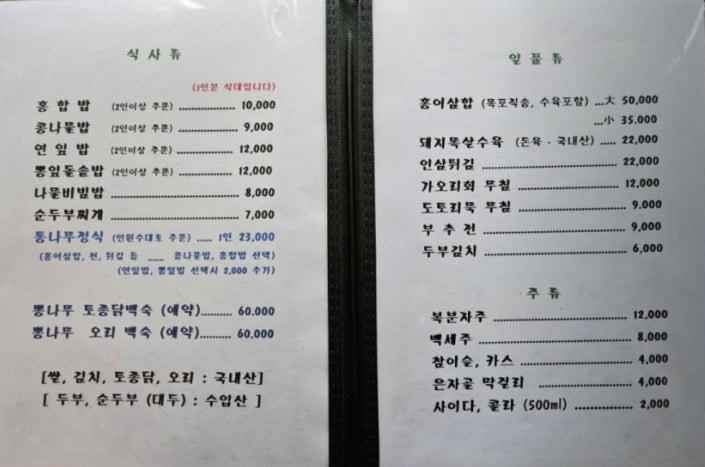 식 사 류
(1인분 식대입니다)
홍 합 밥 (2인이상 주문) .................. 10,000
콩나물밥 (2인이상 주문) .................. 9,000
연 잎 밥 (2인이상 주문) .................. 12,000
뽕잎돌솥밥 (2인이상 주문) .................. 12,000
나물비빔밥 .................. 8,000
순두부찌개 .................. 7,000
통나무정식 (인원수대로 주문) ..... 1인 23,000
(홍어삼합, 전, 튀김 등 __ 콩나물밥, 홍합밥 선택)
(연잎밥, 뽕잎밥 선택시 2,000 추가)
뽕나무 토종닭백숙 (예약)......... 60.000
뽕나무 오리 백숙 (예약)......... 60.000
[쌀, 김치, 토종닭, 오리 : 국내산]
[ 두부, 순두부 (대두) : 수입산 ]
일 품 류
홍어삼합 (목포직송, 수육포함) ...大 50,000
...小 35.000
돼지목살수육 (돈육 - 국내산) ..... 22,000
인삼튀김 .................. 22,000
가오리회 무침 .................. 12,000
도토리묵 무침 .................. 9.000
부 추 전 .................. 9,000
두부김치 .................. 6,000
주 류
복분자주 .................. 12,000
백세주 .................. 8,000
참이슬, 카스 .................. 4,000
은자골 막걸리 .................. 4,000
사이다, 콜라 (500ml) .................. 2,000